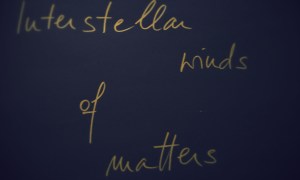 Interstellar
winds
of
matters